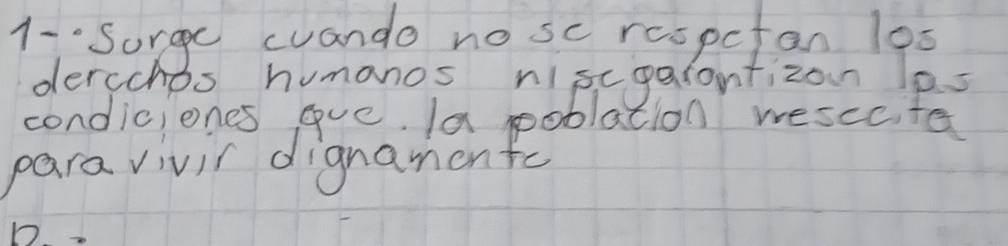 1-. Surge cuando no se respetan los
derechos humanos ni se garantizan los
condiciones que. la poblacion nesecita
para vivir dignamente